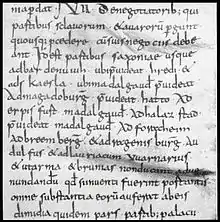 mandat. VII. De negotiatorib; qui
partibus sclavorum & avarorū pgunt
quousq; pcedere cū suis negociis debe
ant. Id est partibus saxoniae usque
ad bardenuuih ubi puideat hredi &
ad skaesla ubi madalgaud puideat
Admagadoburg puideat hatto Ad
erpisfurt madalgaud Ad halazstad
puideat madalgaud Ad foracheim
Ad breemberg & ad regensburg Au
dulfus & ad lauriacum uuarnarius
& ut arma & brunias non ducant aduenun
nundandū qd si inuenti fuerint portantes
omnis substantia eorū auferat abeis
dimidia quidem pars partib; palacii